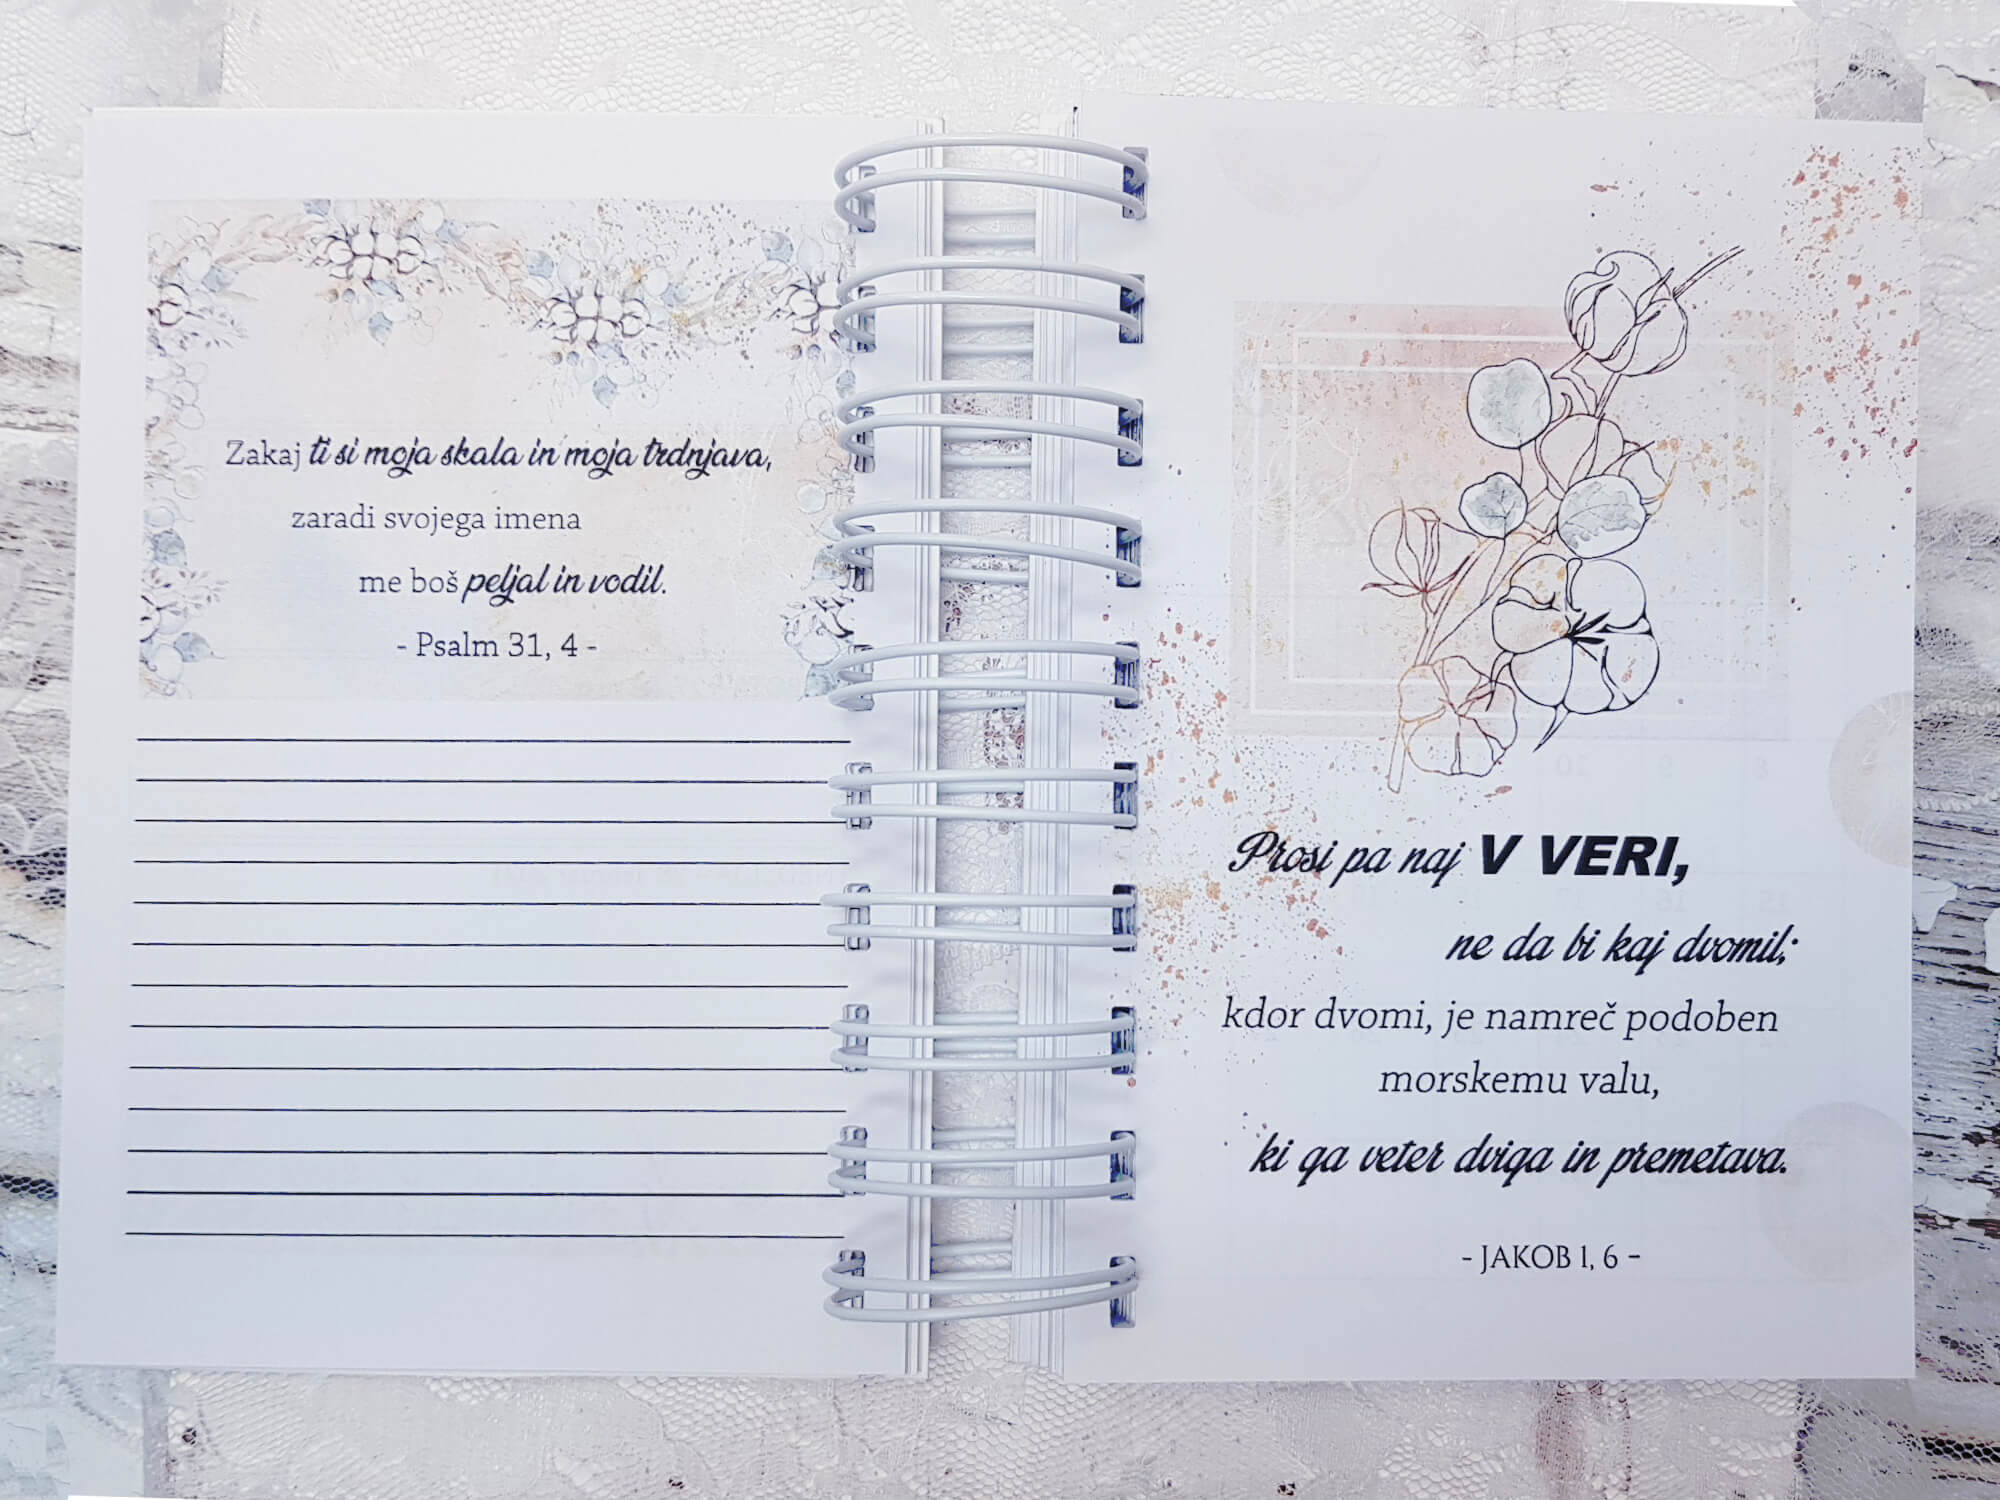 Zakaj ti si moja skala in moja trdnjava,
zaradi svojega imena
me boš peljal in vodil.
- Psalm 31, 4 -
Prosi pa naj V VERI,
ne da bi kaj dvomil;
kdor dvomi, je namreč podoben
morskemu valu,
ki ga veter dviga in premetava.
- JAKOB 1, 6 -